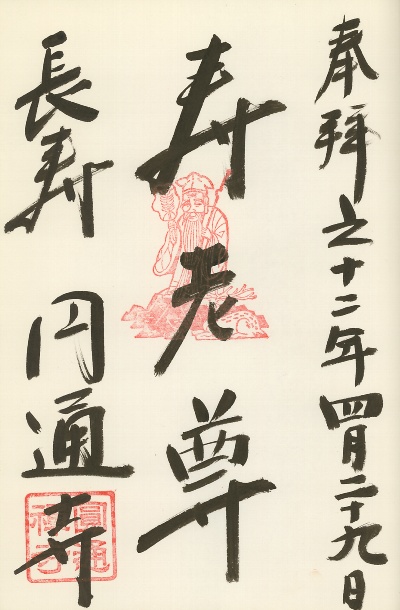 奉拜
元十二年四月二十九日
寿老尊
長寿
円通寺
圓通禅寺